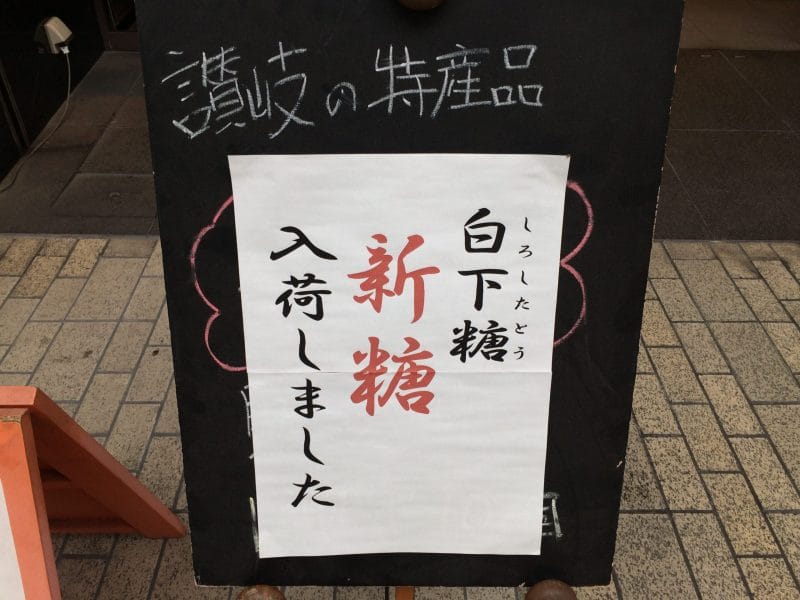 讃岐の特産品
白下糖
しろしたとう
新糖
入荷しました